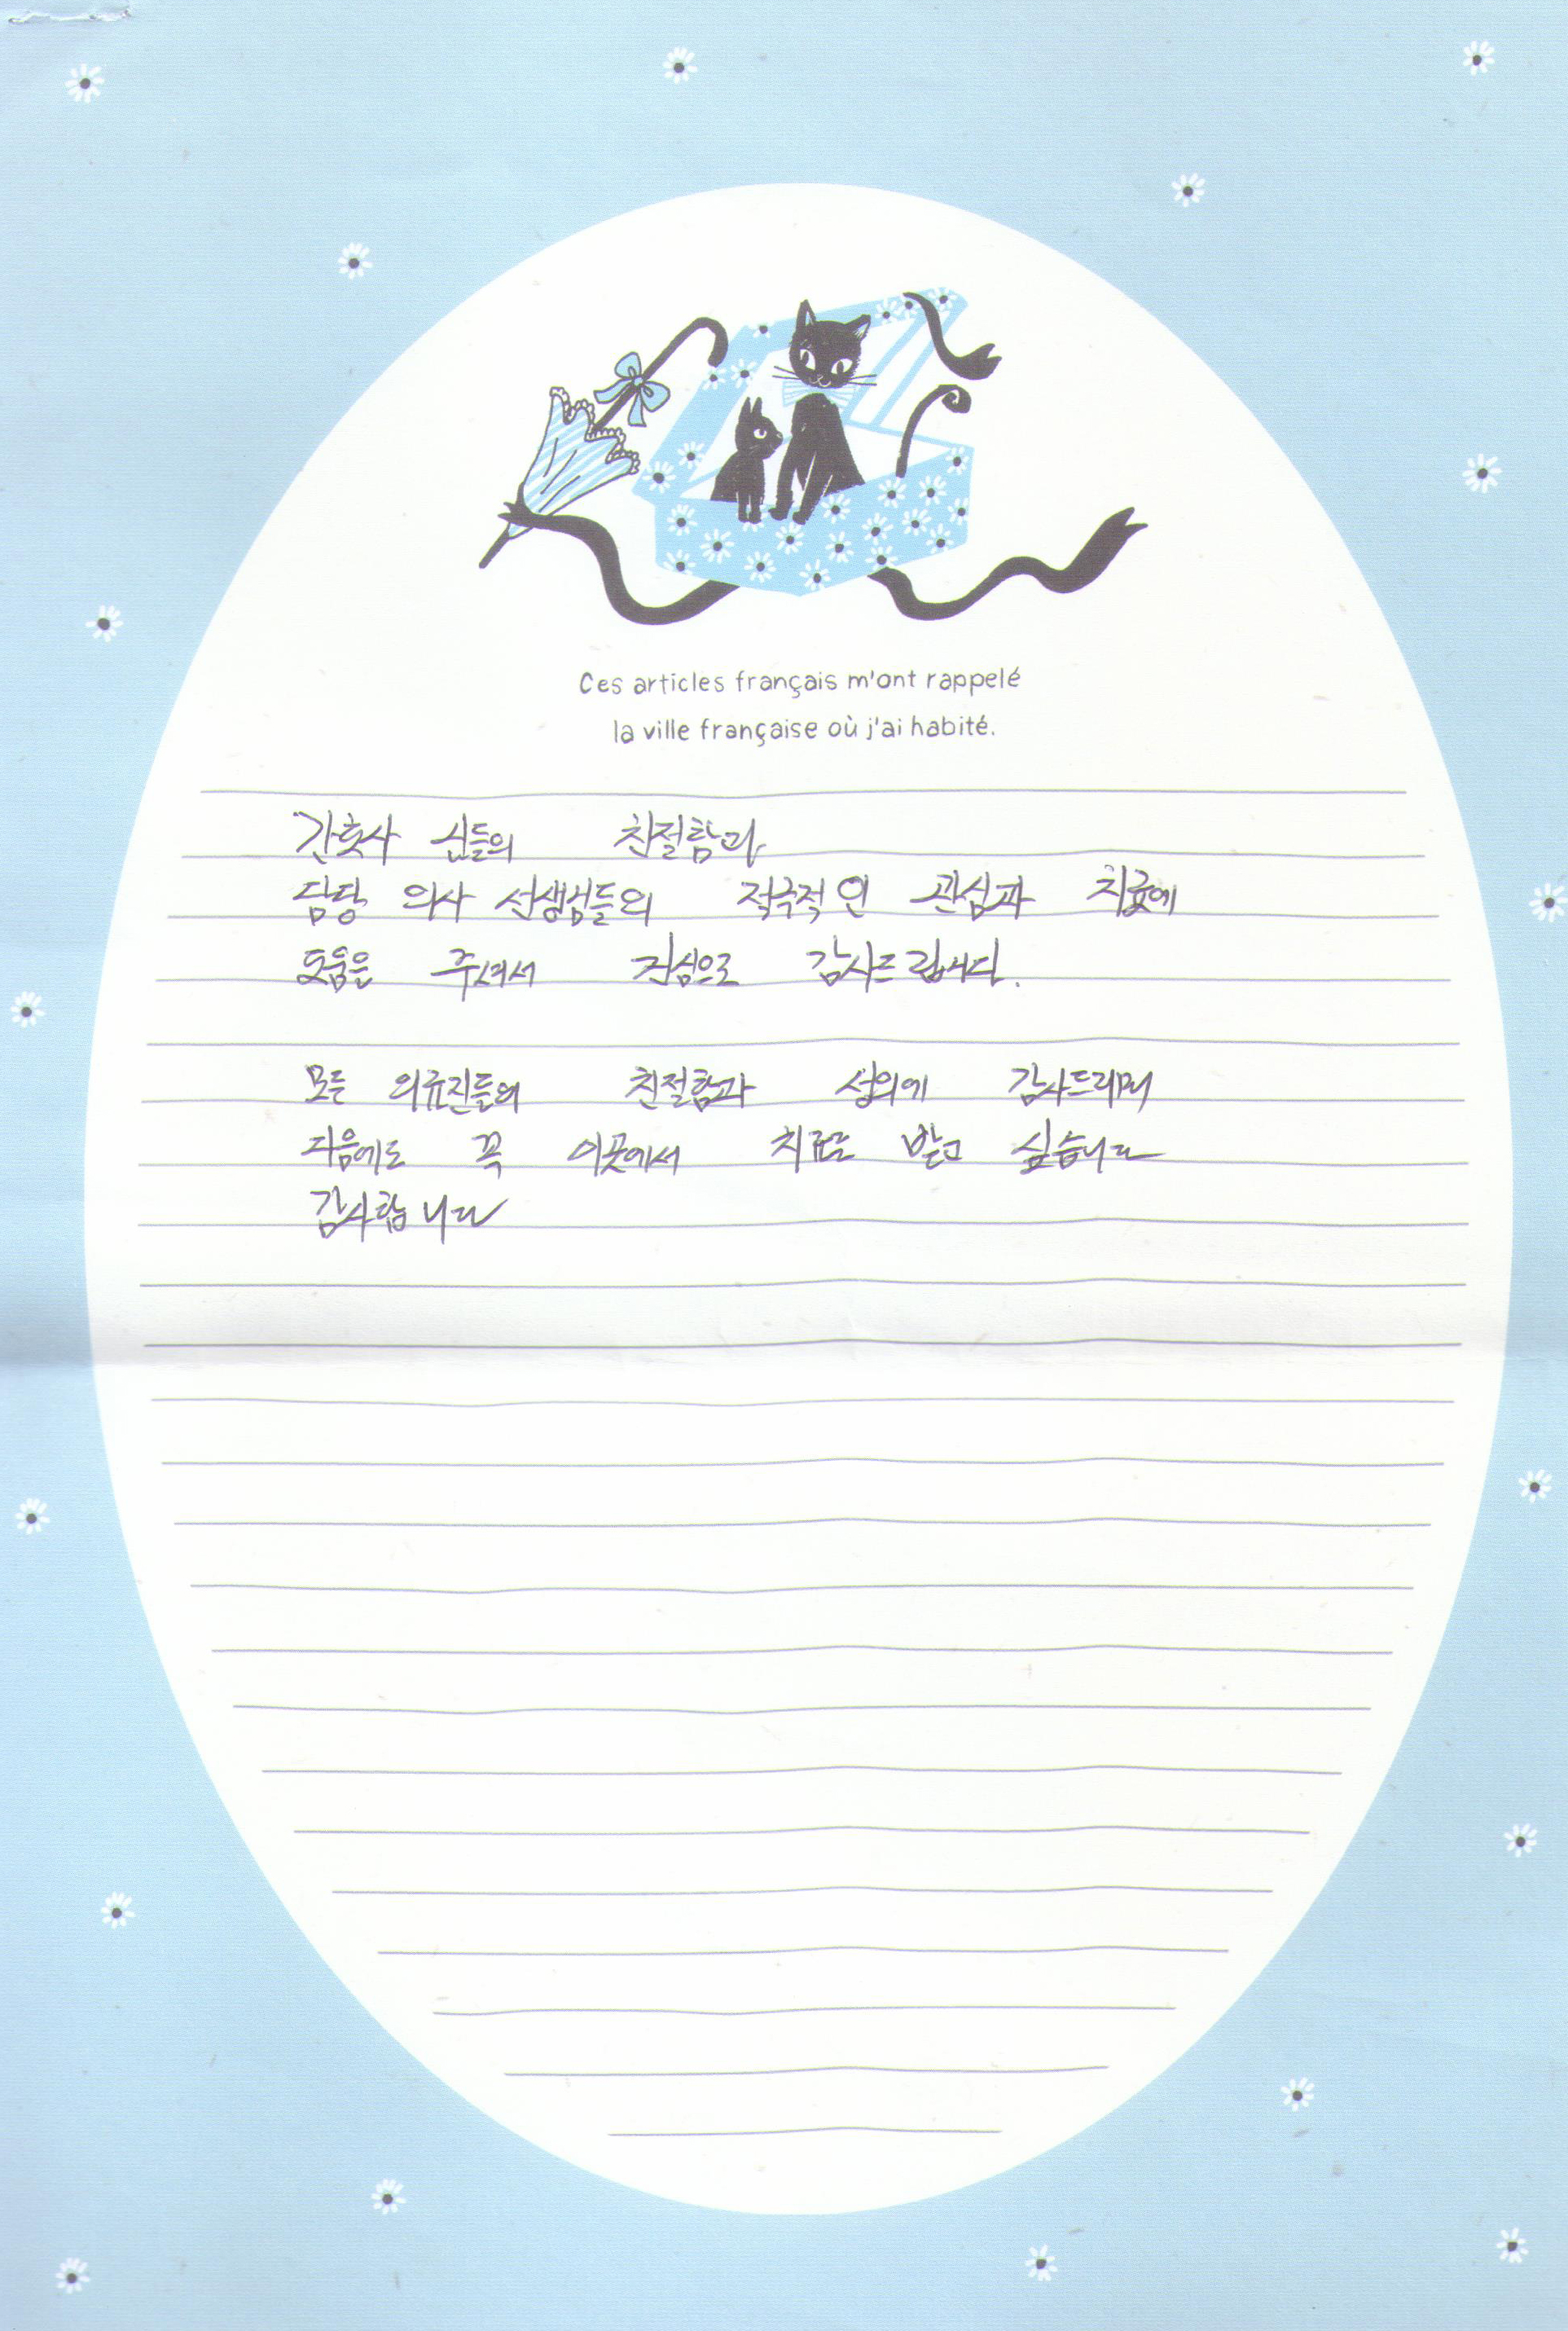 Ces articles français m'ont rappelé
la ville française où j'ai habité.
간호사 님들의 친절함과
담당 의사 선생님들의 적극적인 관심과 치료에
도움을 주셔서 진심으로 감사드립니다.
모든 의료진들의 친절함과 성의에 감사드리며
다음에도 꼭 이곳에서 치료도 받고 싶습니다
감사합니다